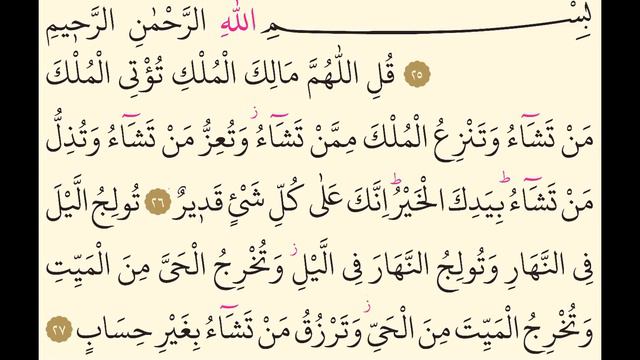 بِسْمِ اللّٰهِ الرَّحْمٰنِ الرَّحٖيمِ
﴿٢٥﴾ قُلِ اللّٰهُمَّ مَالِكَ الْمُلْكِ تُؤْتِى الْمُلْكَ
مَنْ تَشَٓاءُ وَتَنْزِعُ الْمُلْكَ مِمَّنْ تَشَٓاءُؗ وَتُعِزُّ مَنْ تَشَٓاءُ وَتُذِلُّ
مَنْ تَشَٓاءُؕ بِيَدِكَ الْخَيْرُؕ اِنَّكَ عَلٰى كُلِّ شَیْءٍ قَدٖيرٌ ﴿٢٦﴾ تُولِجُ الَّيْلَ
فِى النَّهَارِ وَتُولِجُ النَّهَارَ فِى الَّيْلِؗ وَتُخْرِجُ الْحَىَّ مِنَ الْمَيِّتِ
وَتُخْرِجُ الْمَيِّتَ مِنَ الْحَىِّؗ وَتَرْزُقُ مَنْ تَشَٓاءُ بِغَيْرِ حِسَابٍ ﴿٢٧﴾